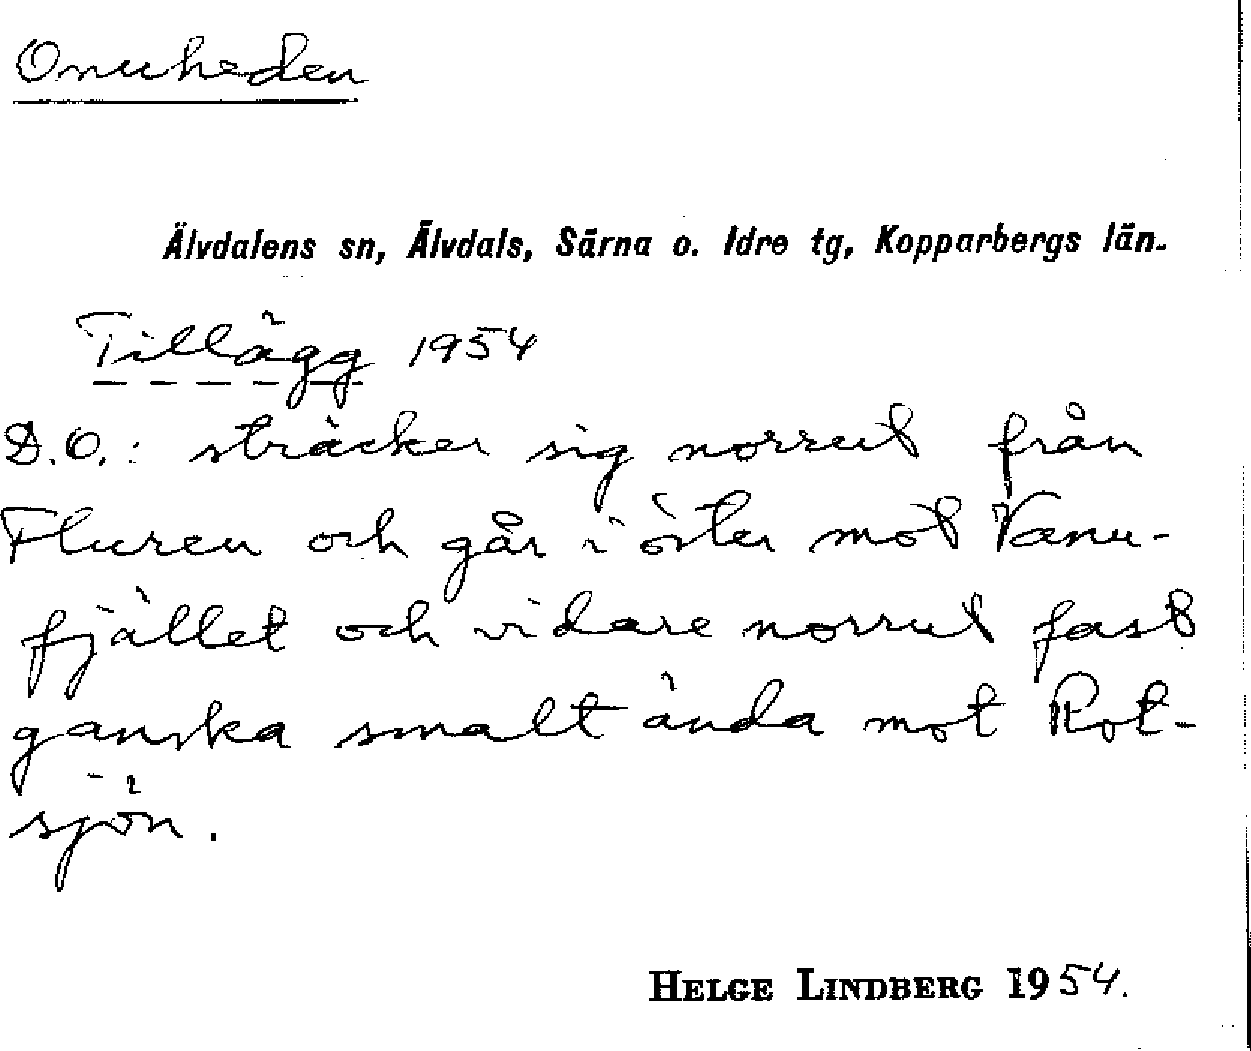 Onuheden
Älvdalens sn, Älvdals, Särna o. Idre tg, Kopparbergs län.
Tillägg 1954
D.O.: sträcker sig norrut från
Fluren och går i öster mot Vænu-
fjället och vidare norrut fast
ganska smalt ända mot Rot-
sjön.
HELGE LINDBERG 1954.